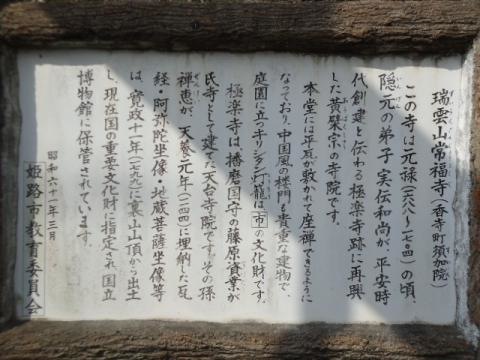 瑞雲山常福寺(香寺町須加院)
この寺は元禄(一六八八〜一七〇四)の頃、
隠元の弟子 実伝和尚が、平安時
代創建と伝わる極楽寺跡に再興
した黄檗宗の寺院です。
本堂には平瓦が敷かれて座禅できるように
なっており、中国風の楼門も貴重な建物で、
庭園に立つキリシタン灯籠は市の文化財です。
極楽寺は、播磨国守の藤原資業が
氏寺として建てた天台寺院です。その孫
禅恵が、天養元年(一一四四)に埋納した瓦
経・阿弥陀坐像・地蔵菩薩坐像等
は、寛政十一年(一七九九)に裏山山頂から出土
し、現在国の重要文化財に指定され国立
博物館に保管されています。
昭和六十一年三月
姫路市教育委員会